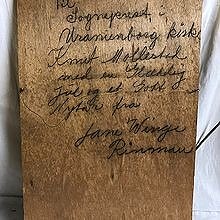 Til
Sogneprest i
Uranienborg kirke
Knut Møllestad
med en Gledelig
Jul og et Godt
Nytår fra
Jane Wenge
Rinmau